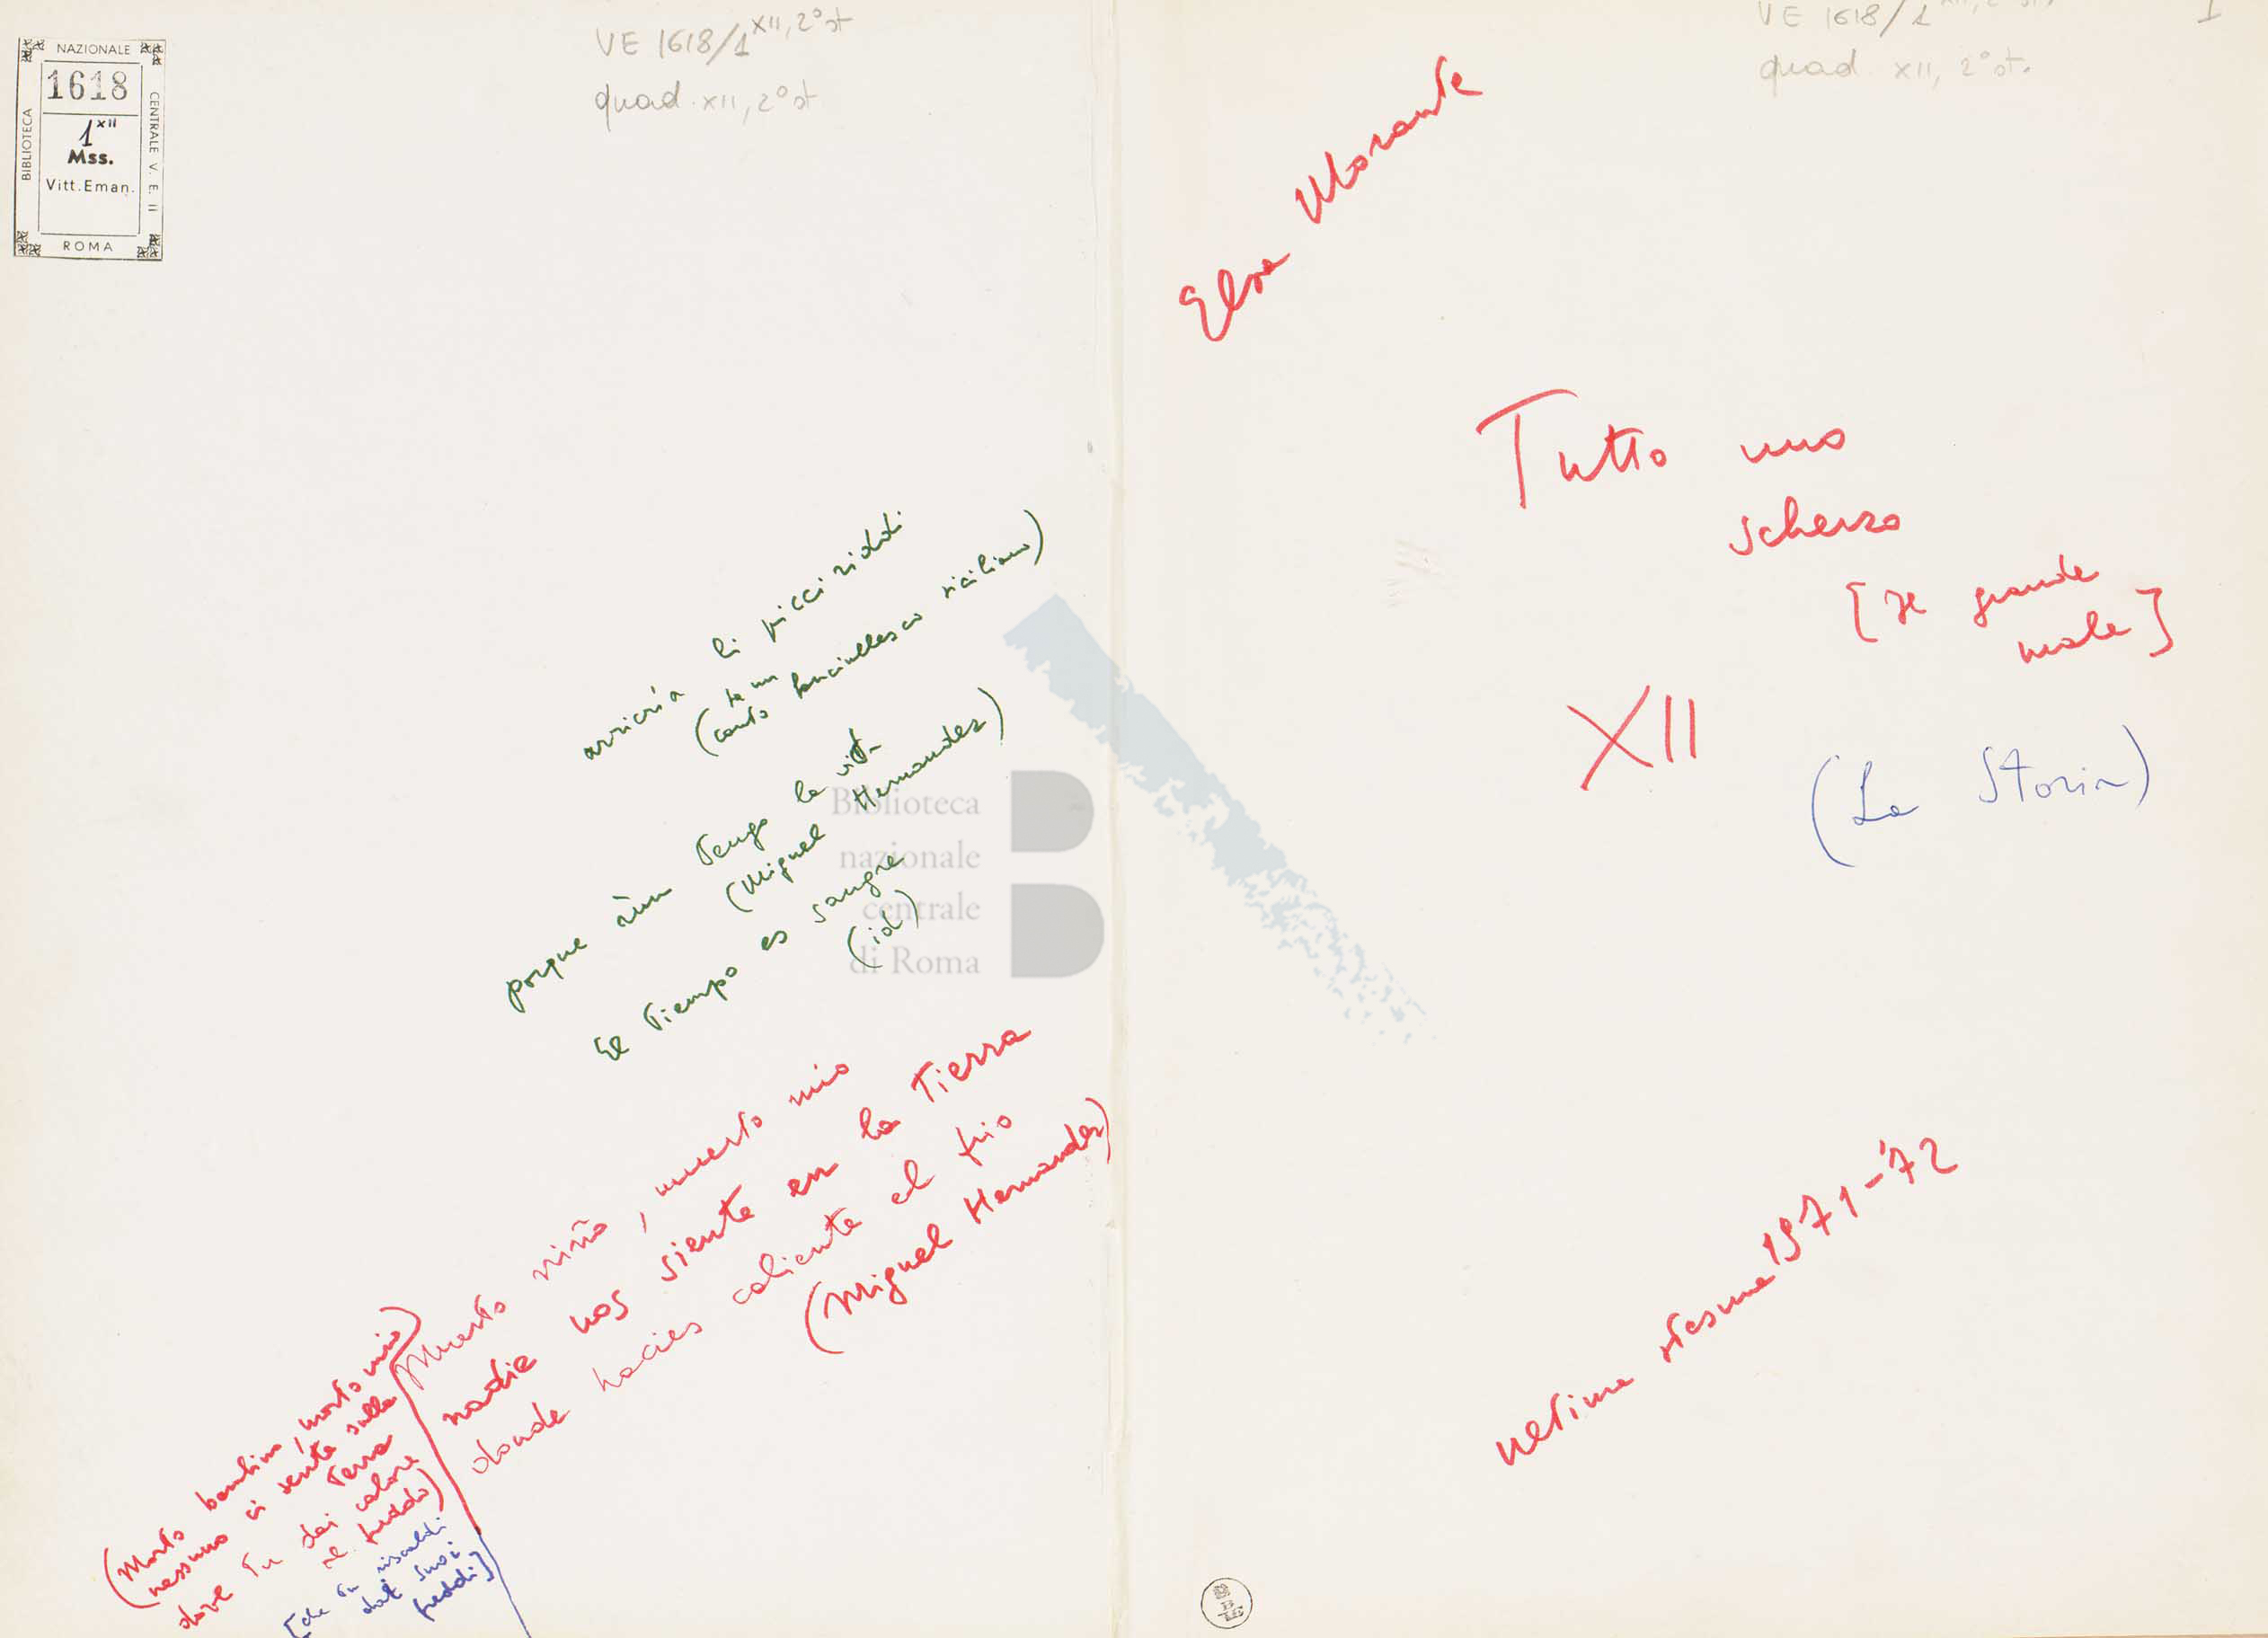 NAZIONALE
BIBLIOTECA
1618
1 XII
Mss.
Vitt.Eman.
CENTRALE V. E. II
ROMA
VE 1618/1 XII, 2° st
quad. XII, 2° st
li picciriddi
(canto fanciullesco siciliano)
porque aún tengo la vid
(Miguel Hernandez)
El tiempo es sangre
(id)
Muerto niño, muerto mio
nadie nos siente en la tierra
donde haces caliente el frio
(Miguel Hernandez)
(Morto bambino, morto mio
nessuno ci sente sulla
terra
dove tu dai calore
al freddo)
tu riscaldi
suoi
freddi]
Biblioteca
nazionale
centrale
di Roma
VE 1618/1 XII, 2° st.
quad. XII, 2° st.
1
Elsa Morante
Tutto uno
scherzo
[Il grande
male]
XII
(La Storia)
stesura 1971-'72